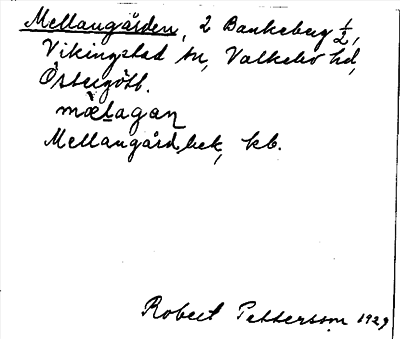 Mellangården, 2 Bankeberg 1/2,
Vikingstad sn, Valkebo hd,
Östergötl.
mæ̀lagan
Mellangård, bek, kb.
Robert Pettersson 1929